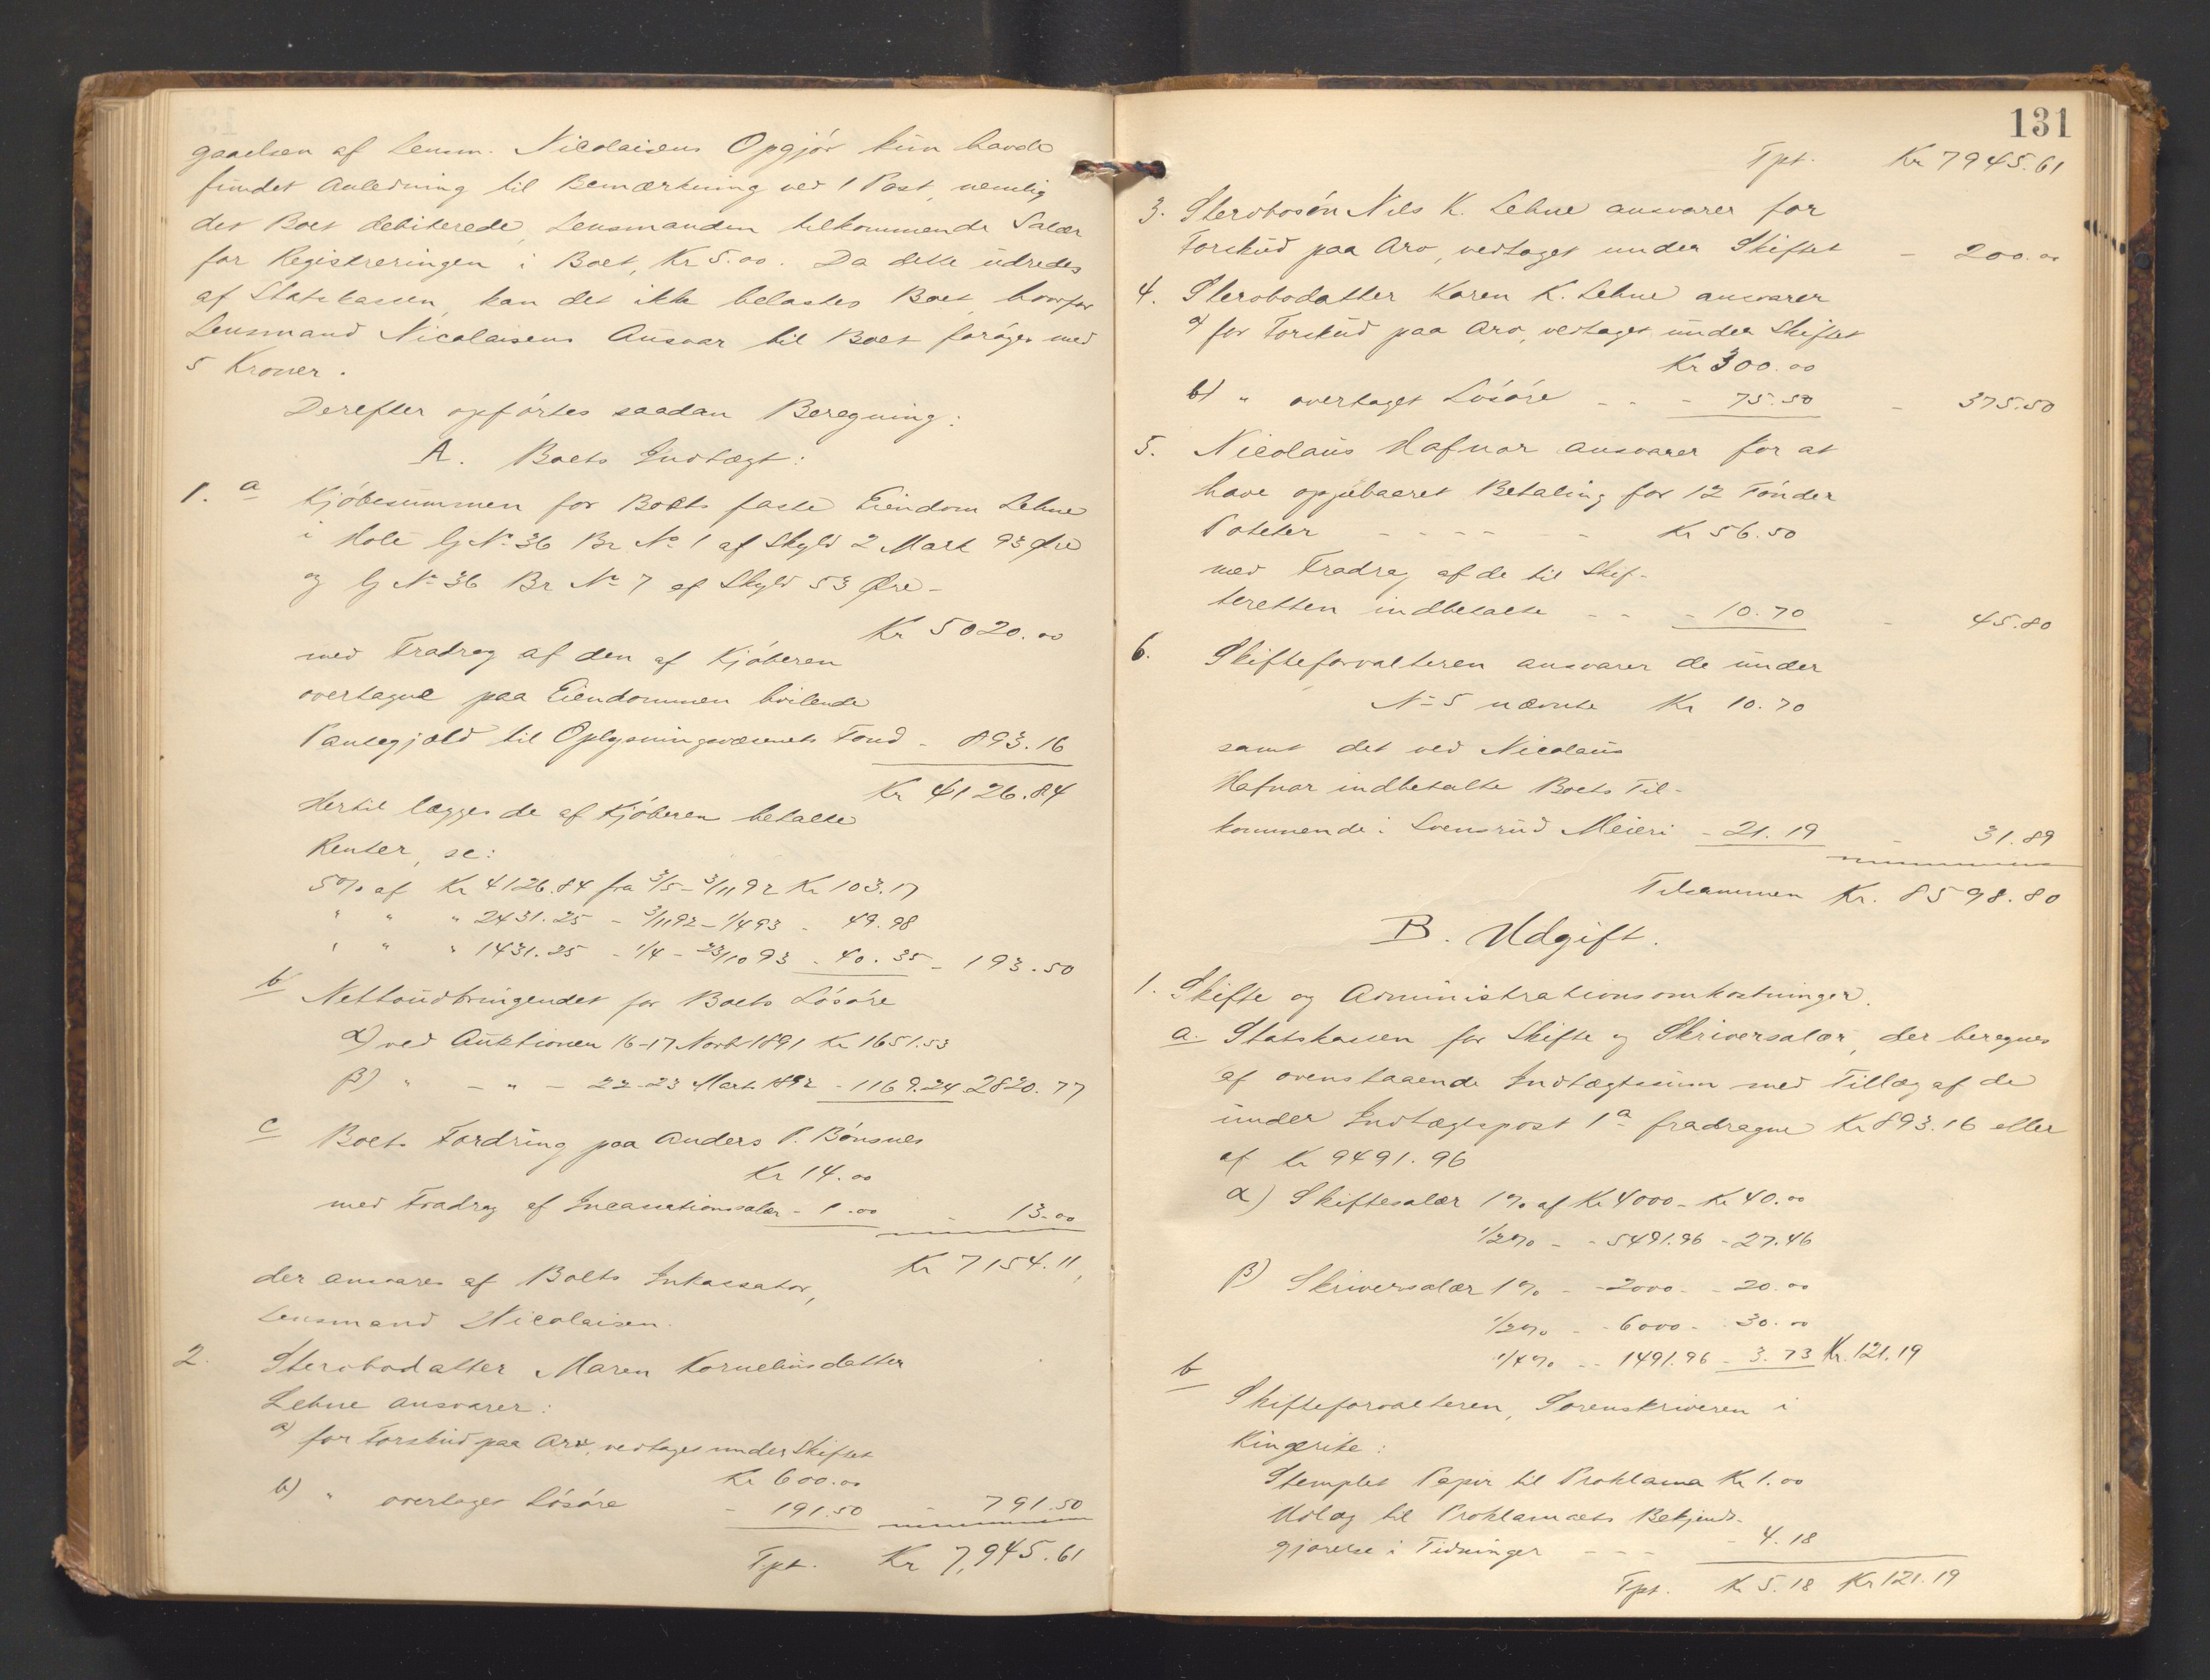 gaaelsen af Lensm. Nicolaisens Opgjör kun havde
fundet Anledning til Bemærkning ved 1 Post, nemlig
det Boet debiterede, Lensmanden tilkommende Salær
for Registreringen i Boet, Kr 5.00. Da dette udredes
af Statskassen, kan det ikke belastes Boet, hvorfor
Lensmand Nicolaisens Ansvar til Boet foröges med
5 Kroner.
Derefter opförtes saadan Beregning:
A. Boets Indtægt:
1. a Kjöbesummen for Boets faste Eiendom Lehne
i Hole G No 36 Br No 1 af Skyld 2 Mark 93 Øre
og G No 36 Br No 7 af Skyld 53 Øre -
Kr 5020.00
med Fradrag af den af Kjöberen
overtagne paa Eiendommen hvilende
Pantegjæld til Oplysningsvæsenets Fond - 893.16
Kr 4126.84
Hertil lægges de af Kjöberen betalte
Renter, sc:
5 % af Kr 4126.84 fra 3/5 - 3/11 92 Kr 103.17
" " " 2431.25 - 3/11 92 - 1/4 93 - 49.98
" " " 1431.25 - 1/4 - 23/10 93 - 40.35 - 193.50
b Nettoudbringendet for Boets Lösöre
α) ved Auktionen 16-17 Novbr 1891 Kr 1651.53
β) " - " - 22-23 Marts 1892 - 1169.24 2820.77
c Boets Fordring paa Anders P. Bönsnes
Kr 14.00
med Fradrag af Incassationssalær - 1.00 - 13.00
Kr 7154.11,
der ansvares af Boets Inkassator,
Lensmand Nicolaisen.
2. Stervbodatter Maren Korneliusdatter
Lehne ansvarer:
a) for Forskud paa Arv, vedtaget under Skiftet
Kr 600.00
b) " overtaget Lösöre - 191.50 - 791.50
Tpt. Kr 7,945.61
131
Tpt. Kr 7945.61
3. Stervbosön Nils K. Lehne ansvarer for
Forskud paa Arv, vedtaget under Skiftet - 200.00
4. Stervbodatter Karen K. Lehne ansvarer
a) for Forskud paa Arv, vedtaget under Skiftet
Kr 300.00
b) " overtaget Lösöre - - - 75.50 - 375.50
5. Nicolaus Hafnor ansvarer for at
have oppebaaret Betaling for 12 Tönder
Poteter - - - - - Kr 56.50
med Fradrag af de til Skif-
teretten indbetalte - - - 10.70 - 45.80
6. Skifteforvalteren ansvarer de under
No 5 nævnte Kr 10.70
samt det ved Nicolaus
Hafnor indbetalte Boets Til-
kommende i Svensrud Meieri - 21.19 - 31.89
Tilsammen Kr. 8598.80
B. Udgift.
1. Skifte og Administrationsomkostninger.
a. Statskassen for Skifte og Skriversalær, der beregnes
af ovenstaaende Indtægtssum med Tillæg af de
under Indtægtspost 1 a fradragne Kr 893.16 eller
af Kr 9491.96
α) Skiftesalær 1 % af Kr 4000 - Kr 40.00
1/2 % - - 5491.96 - 27.46
β) Skriversalær 1 % - - 2000 - - 20.00
1/2 % - - 6000 - - 30.00
1/4 % - - 1491.96 - 3.73 Kr. 121.19
b Skifteforvalteren, Sorenskriveren i
Ringerike:
Stemplet Papir til Proklama Kr 1.00
Udlæg til Proklamaets Bekjendt-
gjörelse i Tidninger - - - - 4.18
Tpt. Kr 5.18 Kr 121.19